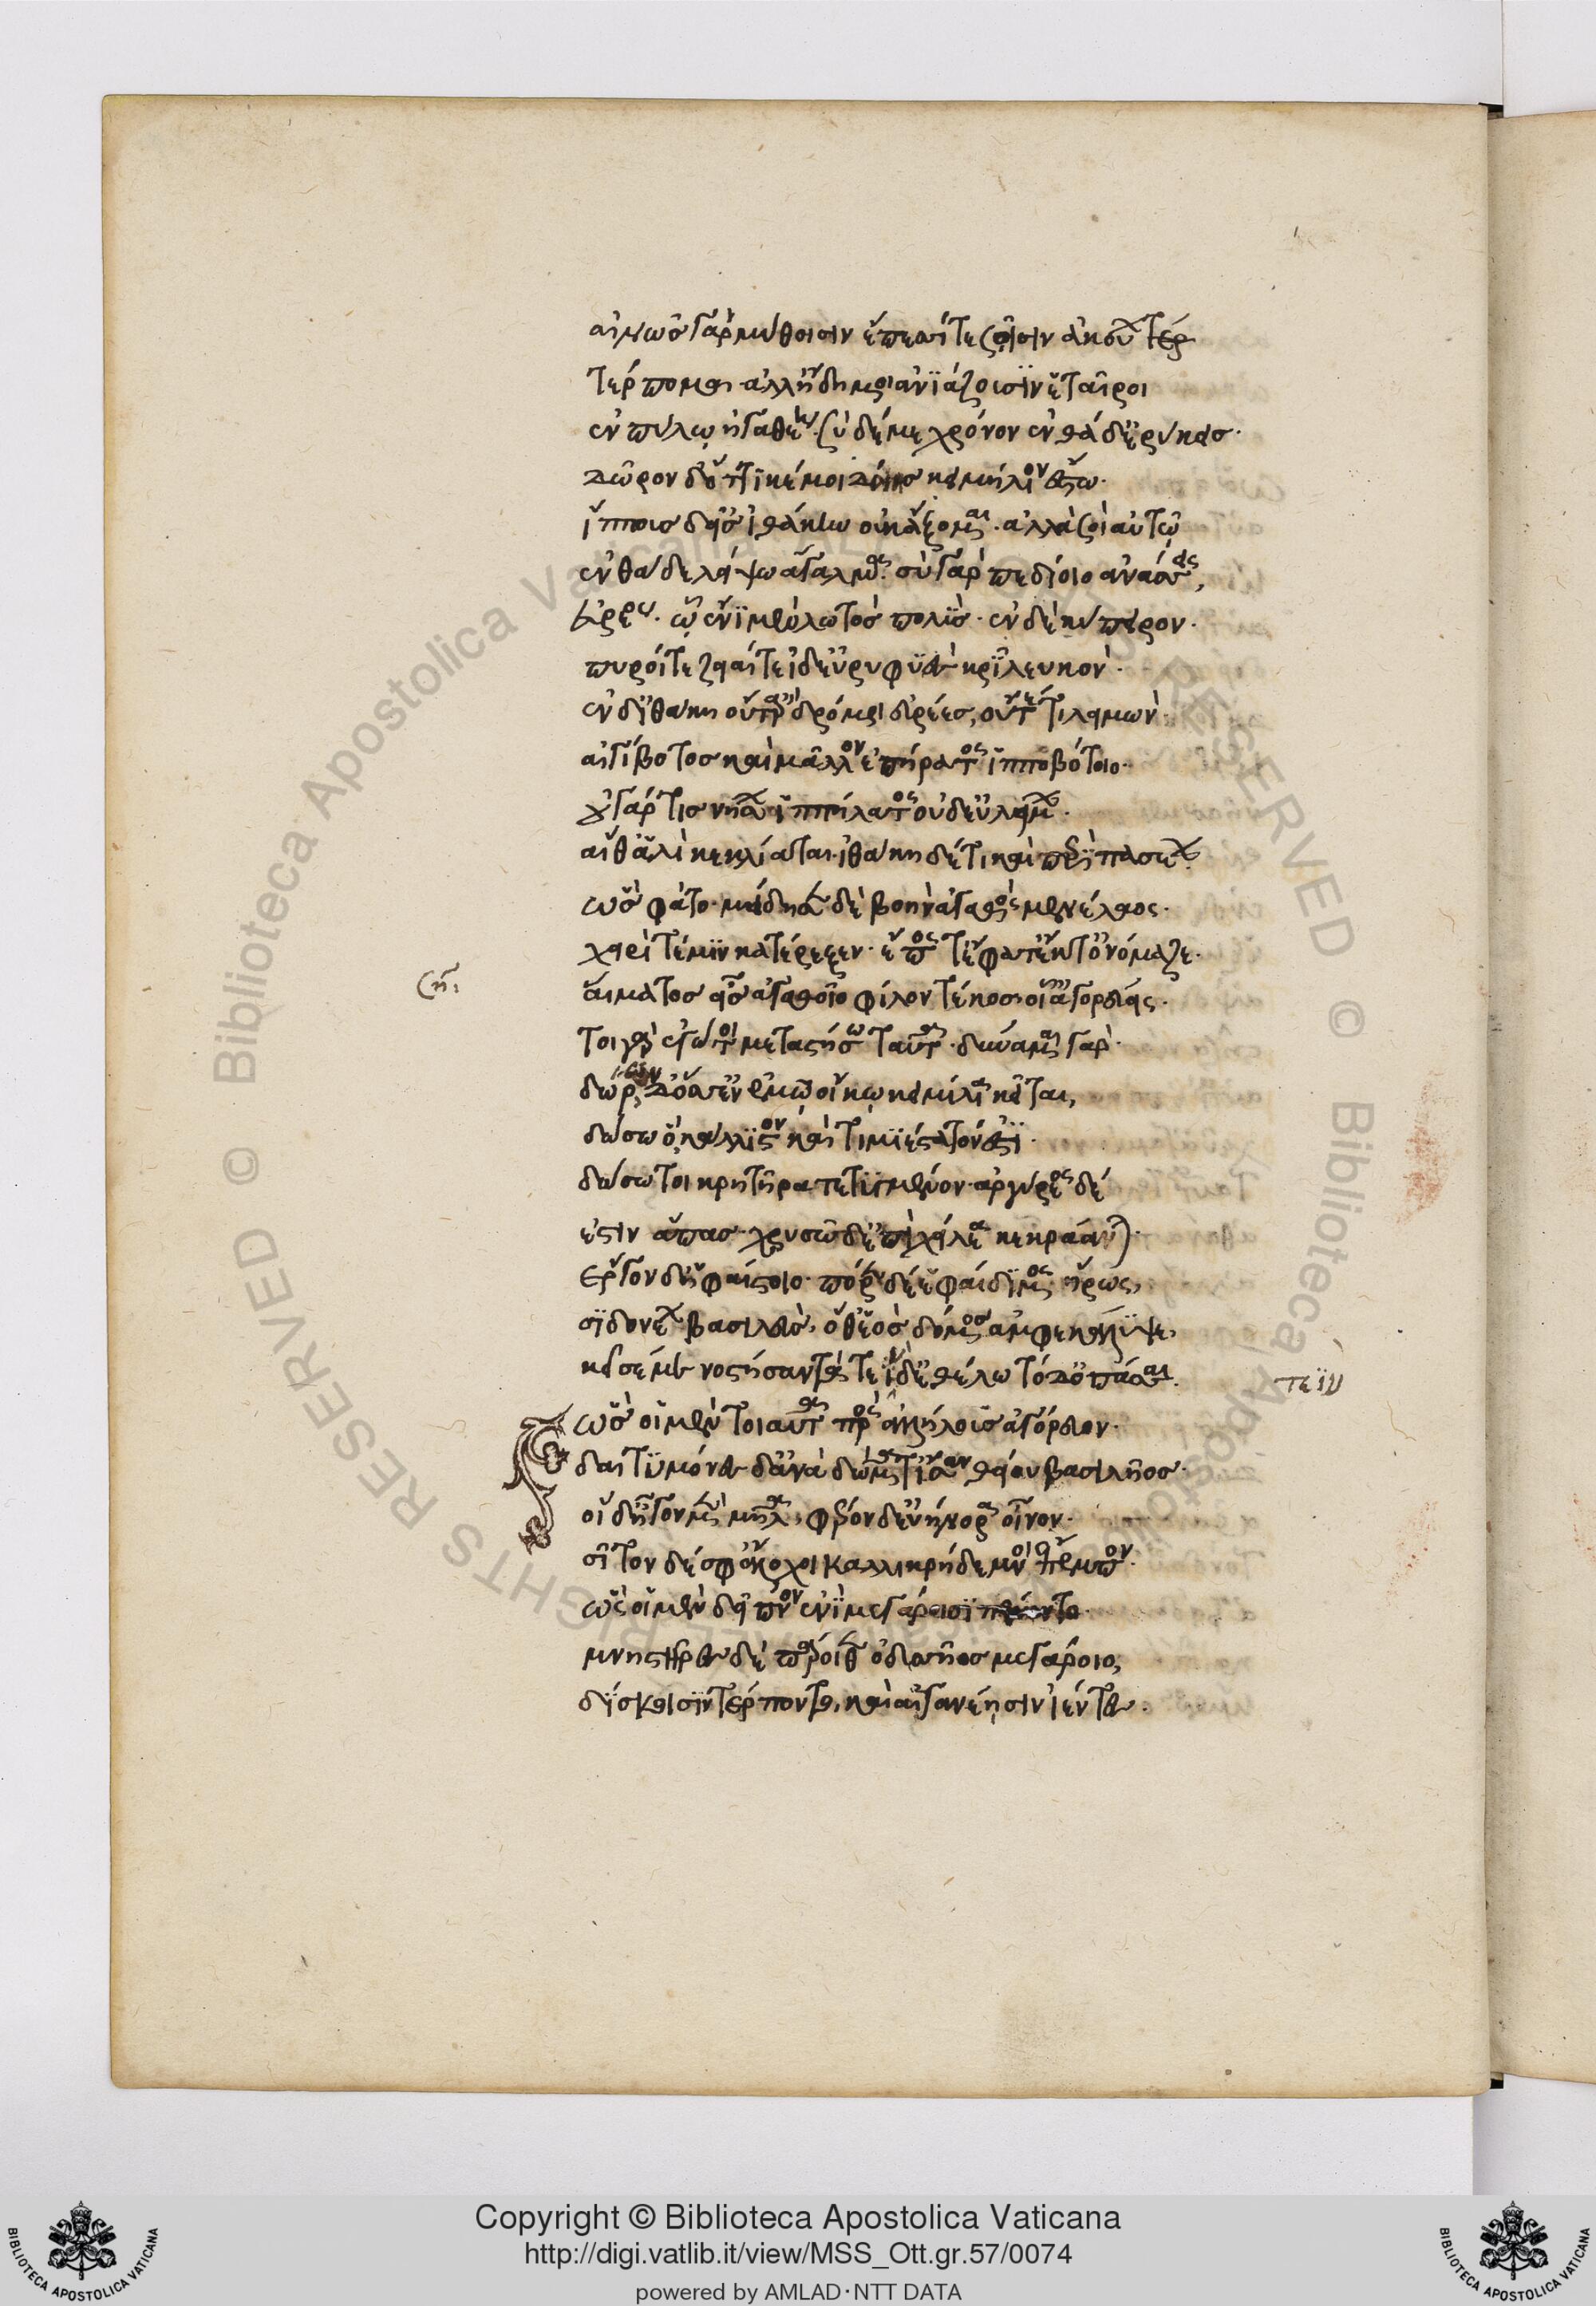 αἰνῶς γὰρ μύθοισιν ἔπεσί τε σοῖσιν ἀκούων τερ
τέρπομαι· ἀλλ' ἤδη μοι ἀνιάζουσιν ἑταῖροι
ἐν πύλῳ ἠγαθέῃ· σὺ δέ με χρόνον ἐνθάδ' ἐρύκεις·
δῶρον δ' ὅττι κ' ἐμοὶ δώης κειμήλιον ἔστω·
ἵππους δ' εἰς ἰθάκην οὐκ ἄξομαι· ἀλλὰ σοὶ αὐτῷ
ἐνθάδε λείψω ἄγαλμα· σὺ γὰρ πεδίοιο ἀνάσσεις,
εὐρέος· ᾧ ἔνι μὲν λωτὸς πολύς· ἐν δὲ κύπειρον·
πυροί τε ζειαί τε ἰδ' εὐρυφυὲς κρῖ λευκόν·
ἐν δ' ἰθάκῃ οὔτ' ἂρ δρόμοι εὐρέες, οὔτέ τι λειμών·
αἰγίβοτος καὶ μᾶλλον ἐπήρατος ἱπποβότοιο·
οὐ γάρ τις νήσων ἱππήλατος οὐδ' εὐλείμων·
αἵ θ' ἁλὶ κεκλίαται· ἰθάκη δέ τε καὶ περὶ πασέων·
ὣς φάτο· μείδησεν δὲ βοὴν ἀγαθὸς μενέλαος·
χειρί τέ μιν κατέρεξεν· ἔπος τ' ἔφατ' ἔκ τ' ὀνόμαζε·
αἵματος εἰς ἀγαθοῖο φίλον τέκος· οἷ' ἀγορεύεις·
τοιγὰρ ἐγώ τοι μεταστήσω ταῦτα· δύναμαι γάρ·
δώρων δ' ὅσσ' ἐν ἐμῷ οἴκῳ κειμήλια κεῖται,
δώσω ὃ κάλλιστον καὶ τιμιέστατόν ἐστι·
δώσω τοι κρητῆρα τετυγμένον· ἀργύρεος δέ
ἐστιν ἅπας· χρυσῷ δ' ἐπὶ χείλεα κεκράανται·
ἔργον δ' ἡφαίστοιο· πόρεν δέ ἑ φαίδιμος ἥρως,
σιδονίων βασιλεύς, ὅθ' ἑὸς δόμος ἀμφεκάλυψε,
κεῖσέ με νοστήσαντα· τεῒν δ' ἐθέλω τόδ' ὀπάσσαι.
ὣς οἱ μὲν τοιαῦτα πρὸς ἀλλήλους ἀγόρευον·
δαιτυμόνες δ' ἀνὰ δώματ' ἴσαν θείου βασιλῆος·
οἱ δ' ἦγον μὲν μῆλα, φέρον δ' εὐήνορα οἶνον·
σῖτον δέ σφ' ἄλοχοι καλλικρήδεμνοι ἔπεμπον·
ὣς οἱ μὲν δεῖπνον ἐνὶ μεγάροισι πένοντο·
μνηστῆρες δὲ πάροιθεν ὀδυσσῆος μεγάροιο,
δίσκοισιν τέρποντο, καὶ αἰγανέῃσιν ἱέντες·
τεῒν